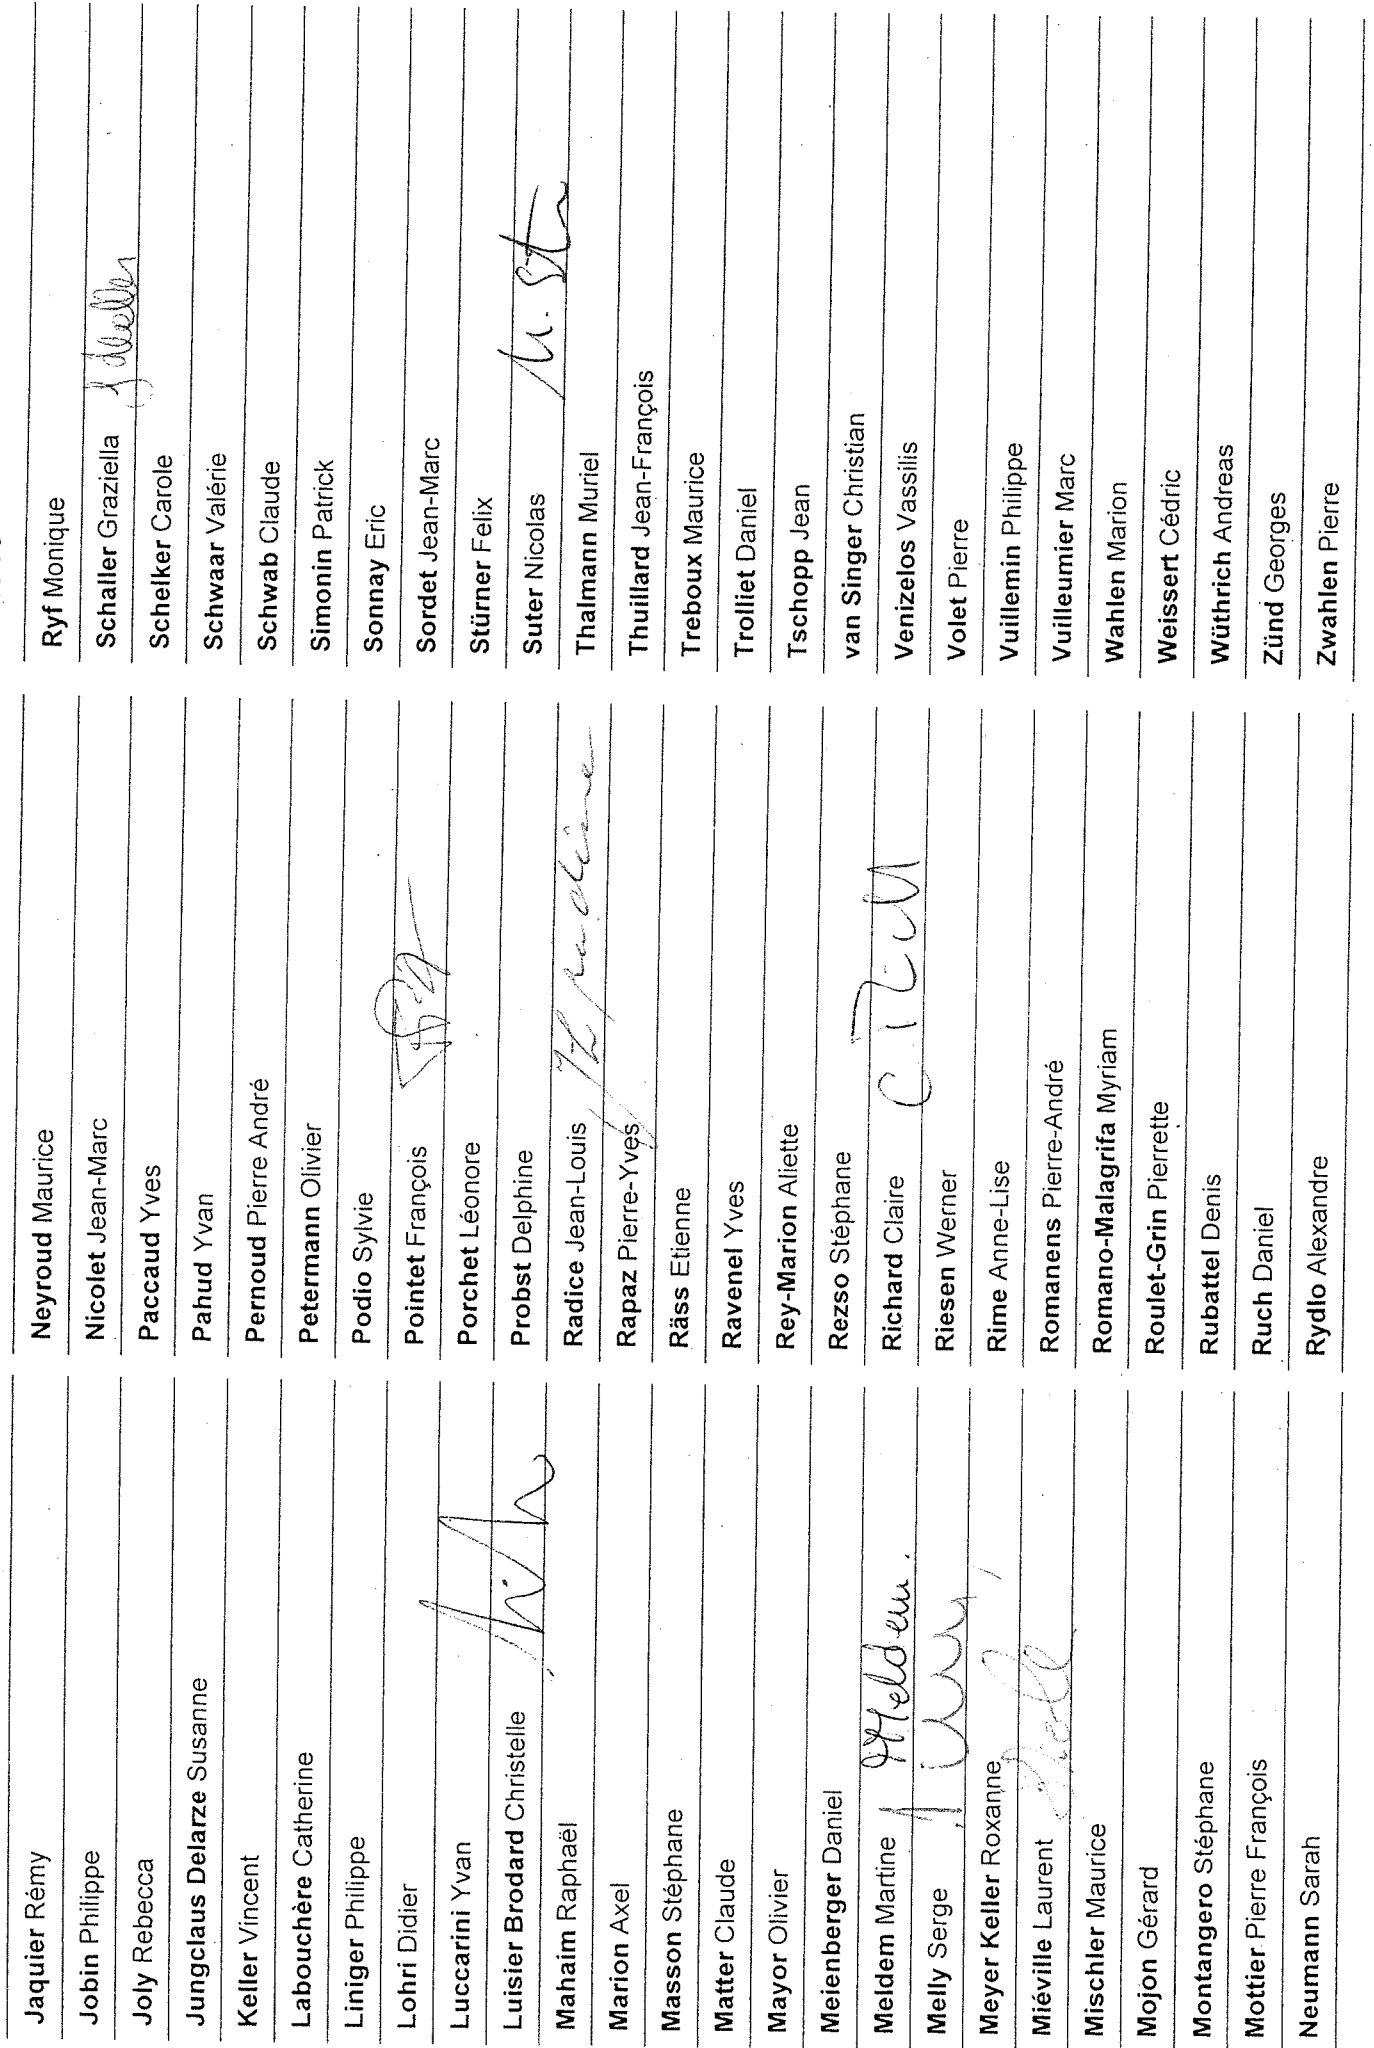 Jaquier Rémy
Jobin Philippe
Joly Rebecca
Jungclaus Delarze Susanne
Keller Vincent
Labouchère Catherine
Liniger Philippe
Lohri Didier
Luccarini Yvan
Luisier Brodard Christelle
Mahaim Raphaël
Marion Axel
Masson Stéphane
Matter Claude
Mayor Olivier
Meienberger Daniel
Meldem Martine Meldem.
Melly Serge
Meyer Keller Roxanne
Miéville Laurent
Mischler Maurice
Mojon Gérard
Montangero Stéphane
Mottier Pierre François
Neumann Sarah
Neyroud Maurice
Nicolet Jean-Marc
Paccaud Yves
Pahud Yvan
Pernoud Pierre André
Petermann Olivier
Podio Sylvie
Pointet François
Porchet Léonore
Probst Delphine
Radice Jean-Louis
Rapaz Pierre-Yves
Räss Etienne
Ravenel Yves
Rey-Marion Aliette
Rezso Stéphane
Richard Claire
Riesen Werner
Rime Anne-Lise
Romanens Pierre-André
Romano-Malagrifa Myriam
Roulet-Grin Pierrette
Rubattel Denis
Ruch Daniel
Rydlo Alexandre
Ryf Monique
Schaller Graziella
Schelker Carole
Schwaar Valérie
Schwab Claude
Simonin Patrick
Sonnay Eric
Sordet Jean-Marc
Stürner Felix
Suter Nicolas
Thalmann Muriel
Thuillard Jean-François
Treboux Maurice
Trolliet Daniel
Tschopp Jean
van Singer Christian
Venizelos Vassilis
Volet Pierre
Vuillemin Philippe
Vuilleumier Marc
Wahlen Marion
Weissert Cédric
Wüthrich Andreas
Zünd Georges
Zwahlen Pierre